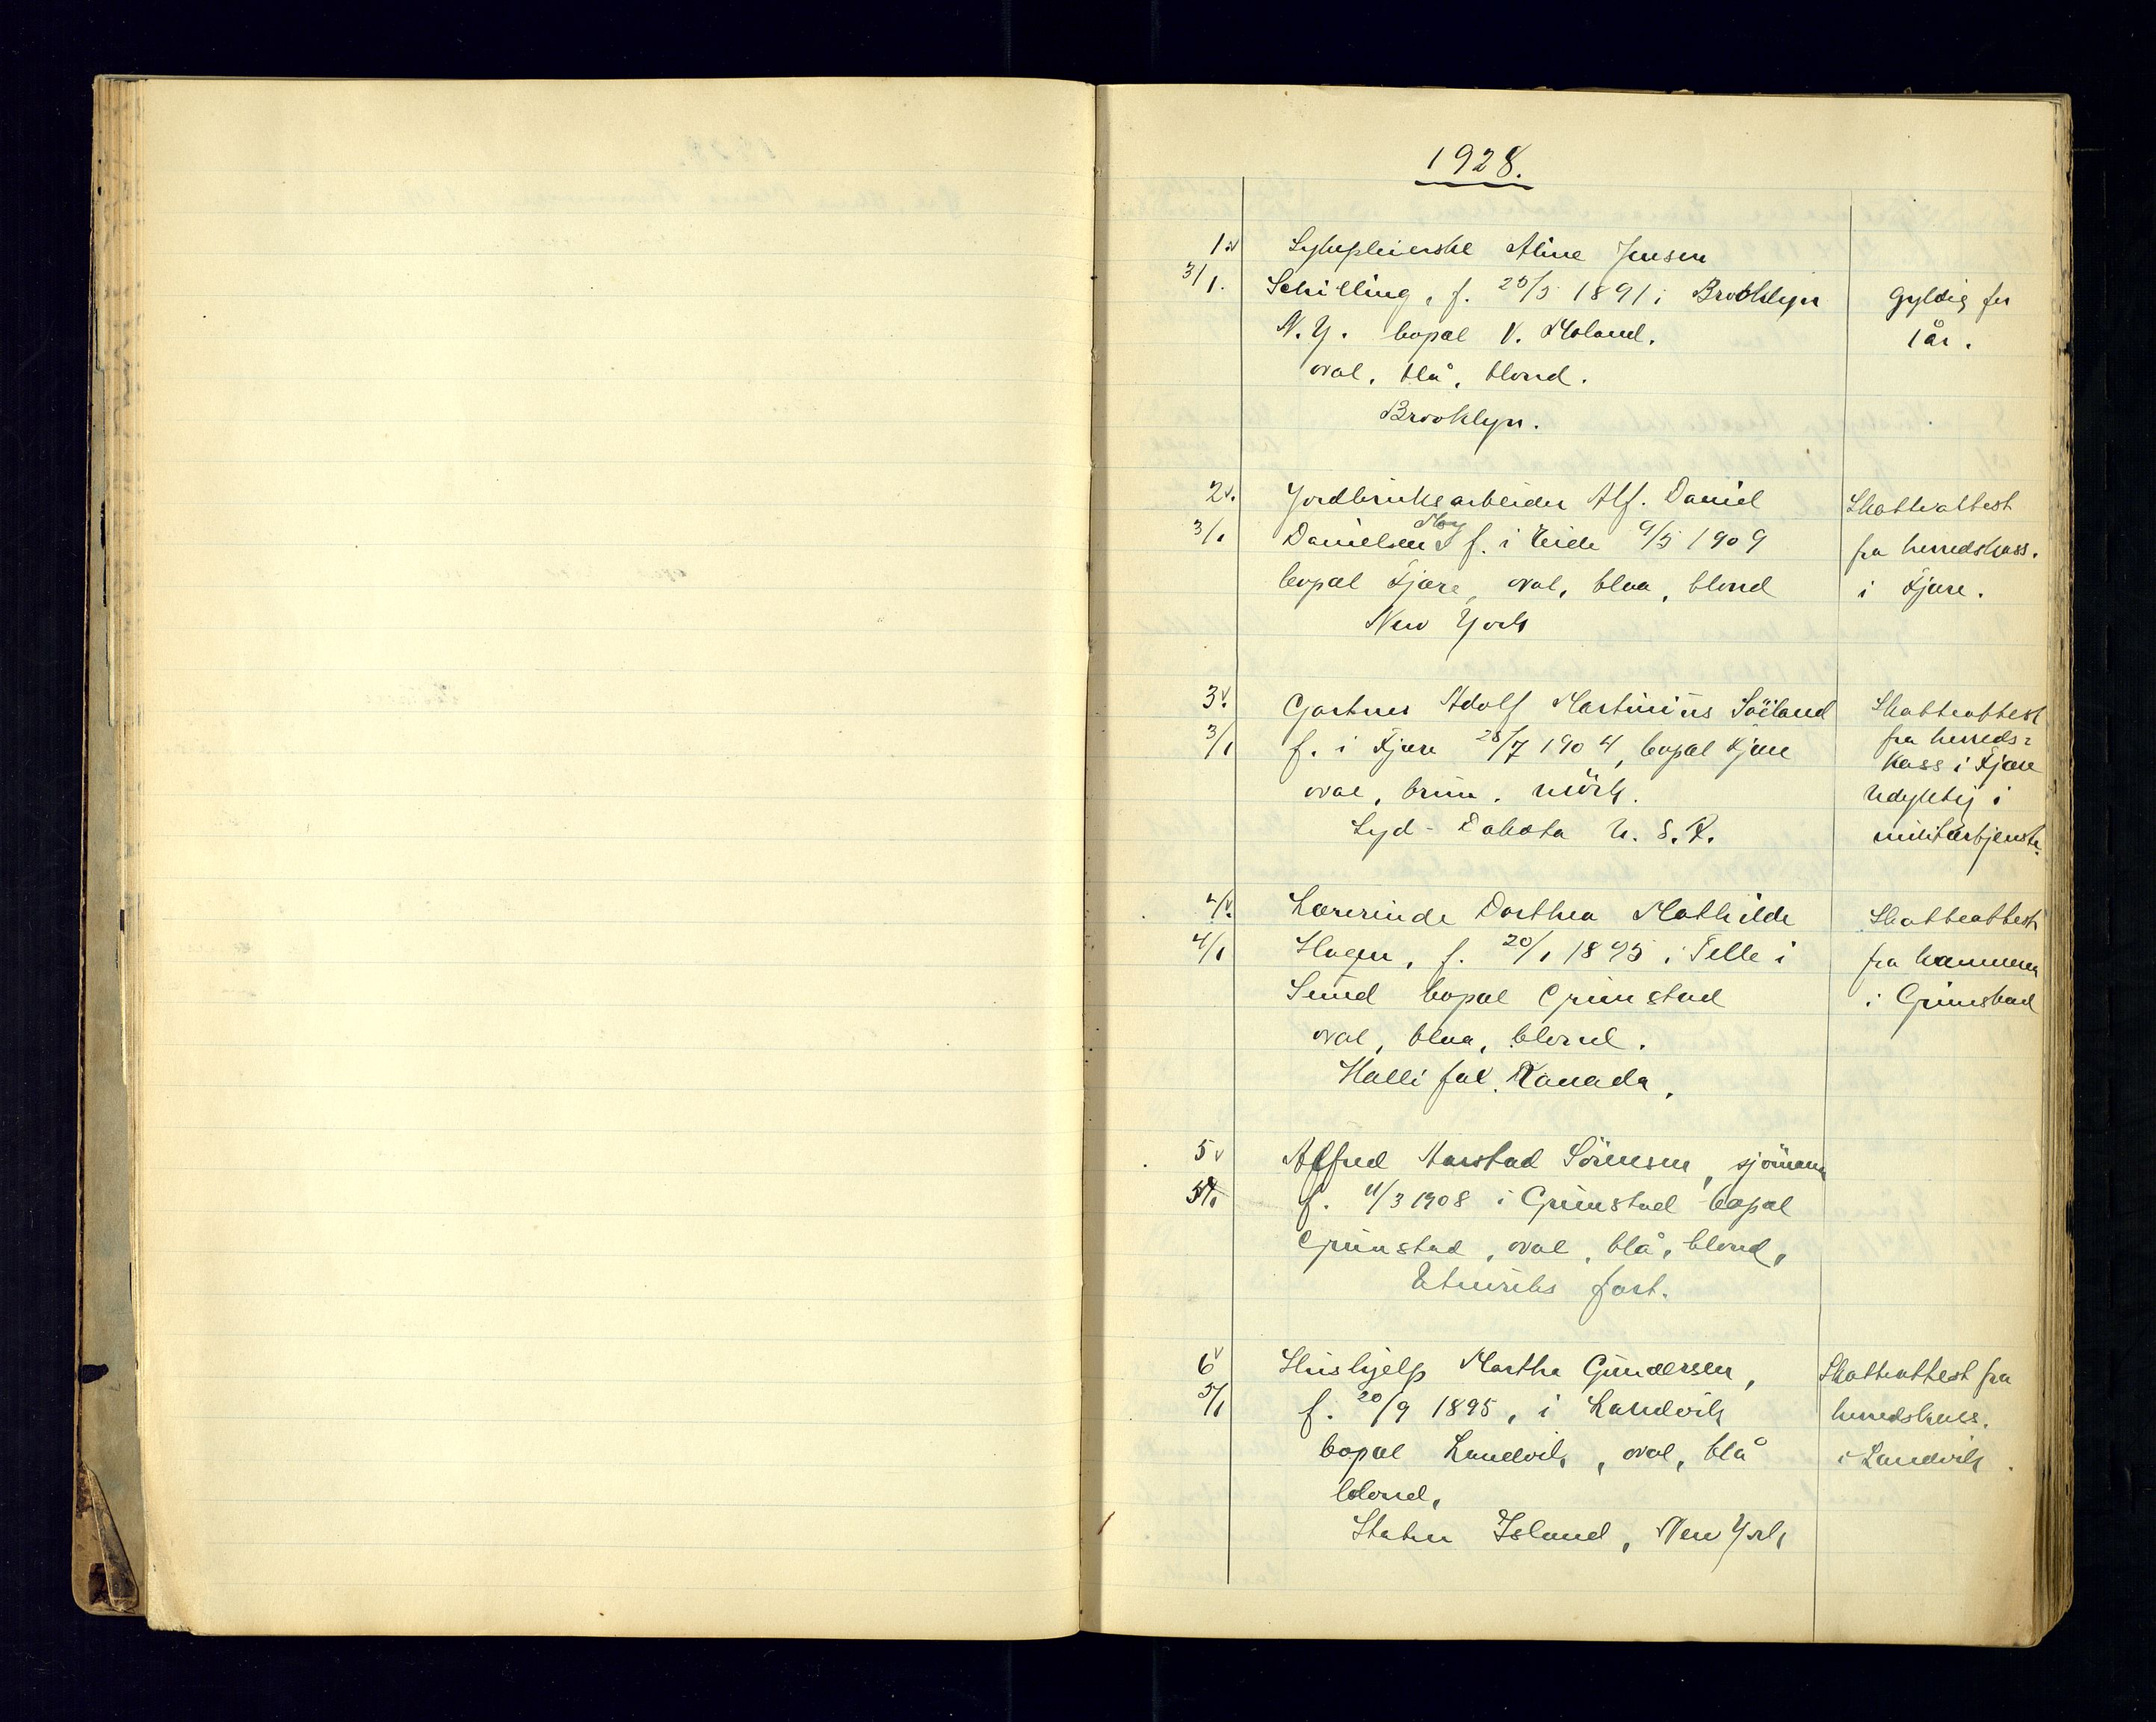 1928.
1. Sykepleierske Aline Jensen
3/1. Schilling, f. 25/5 1891 i Brooklyn Gyldig for
N. Y. bopæl V. Moland. 1 år.
oval, blå, blond.
Brooklyn.
2. Jordbruksarbeider Alf. Daniel Skatteattest
3/1 Danielsen f. i Eide 9/5 1909 fra herredskass.
bopæl Fjære, oval, blaa, blond i Fjære.
New York
3. Gartner Adolf Martinius Söiland Skatteattest
3/1 f. i Fjære 28/7 1904, bopæl Fjære fra herreds-
kass i Fjære
oval, brun, mörk. Udyktig i
Syd-Dakota U. S. A. militærtjeneste.
4. Lærerinde Dorthea Mathilde Skatteattest
4/1 Hagen, f. 20/1 1895 i Telle i fra kæmneren
Sund bopæl Grimstad i Grimstad
oval, blaa, blond.
Hallifax. Kanada.
5 Alfred Aarstad Sörensen, sjömann
f. 11/3 1908 i Grimstad bopæl
Grimstad, oval, blå, blond,
Utenriks fart.
6 Hushjelp Martha Gundersen, Skatteattest fra
5/1 f. 20/9 1895, i Landvik herredskass.
bopæl Landvik, oval, blå i Landvik.
blond,
Staten Island, New York